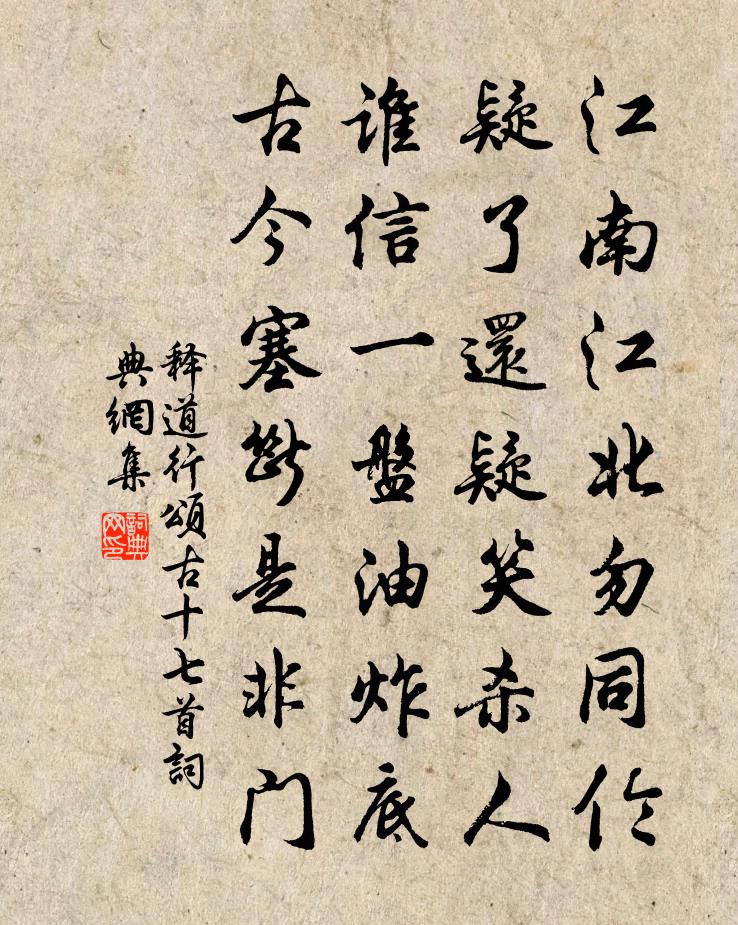 江南江北勿同伦
疑了還疑笑杀人
谁信一盤油炸底
古今塞斷是非门
释道行頌古十七首詞
典網集
詞典
网印